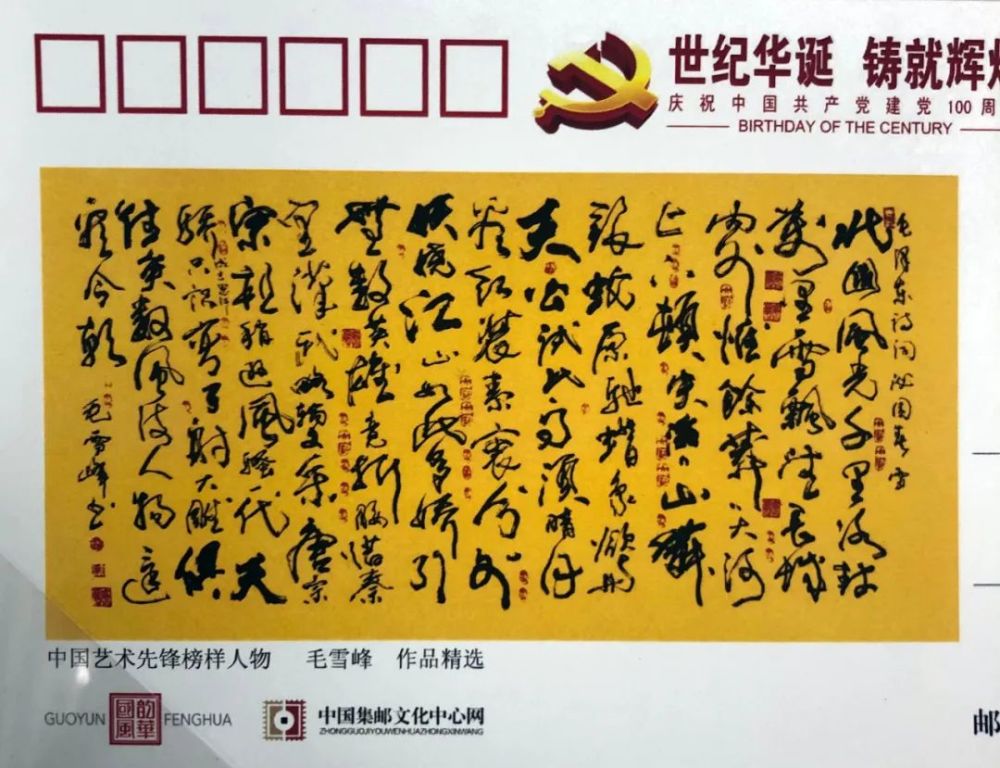 世纪华诞 铸就辉
庆祝中国共产党建党100周
BIRTHDAY OF THE CENTURY
毛泽东诗词沁园春雪
北國風光千里冰封
萬里雪飄望長城
内外惟餘莽莽大河
上下頓失滔滔山舞
銀蛇原馳蜡象欲與
天公試比高須晴日
看红装素裹分外
妖嬈江山如此多嬌引
無數英雄竞折腰惜秦
皇漢武略输文采唐宗
宋祖稍逊風骚一代天
骄成吉思汗只识弯弓射大雕俱
往矣數風流人物還
看今朝 毛雪峰书
中国艺术先锋榜样人物 毛雪峰 作品精选
GUOYUN 國韵風華 FENGHUA
中国集邮文化中心网
ZHONGGUOJIYOUWENHUAZHONGXINWANG
邮